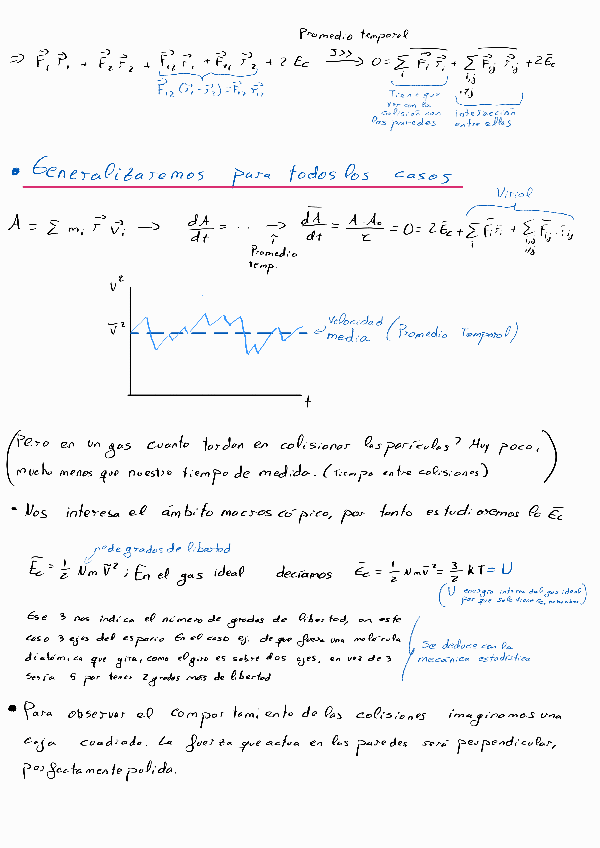 Promedio temporal
⇒ F⃗₁ r⃗₁ + F⃗₂ r⃗₂ + F⃗₁₂ r⃗₁ + F⃗₂₁ r⃗₂ + 2 Ec → 0 = Σᵢ F⃗ᵢ r⃗ᵢ + Σᵢ,ⱼ F⃗ᵢⱼ r⃗ᵢⱼ + 2Ēc
Tiene que
ver con la
colisión con
las paredes
interacción
entre ellos
• Generalizaremos para todos los casos
Virial
A = Σ mᵢ r⃗ v⃗ᵢ → dA/dt = ... → dA/dt = A A₀/τ = 0 = 2Ēc + Σᵢ F⃗ᵢ rᵢ + Σ F⃗ᵢⱼ · r⃗ᵢⱼ
Promedio
temp.
v²
v̄²
velocidad
media (Promedio Temporal)
t
(Pero en un gas cuanto tardan en colisionar las parículas? Muy poco,
mucho menos que nuestro tiempo de medida. (Tiempo entre colisiones))
• Nos interesa el ámbito macroscópico, por tanto estudiaremos la Ēc
nº de grados de libertad
Ēc = 1/2 N m v̄² ; En el gas ideal decíamos Ēc = 1/2 N m v̄² = 3/2 k T = U
(U energía interna del gas ideal
Ese 3 nos indica el número de grados de libertad, en este
caso 3 ejes del espacio En el caso ej. de que fuera una molécula
diatómica que gira, como el giro es sobre dos ejes, en vez de 3
sería 5 por tener 2 grados más de libertad
Se deduce con la
mecánica estadística
• Para observar el comportamiento de las colisiones imaginamos una
caja cuadrada. La fuerza que actua en las paredes será perpendicular,
perfectamente pulida.